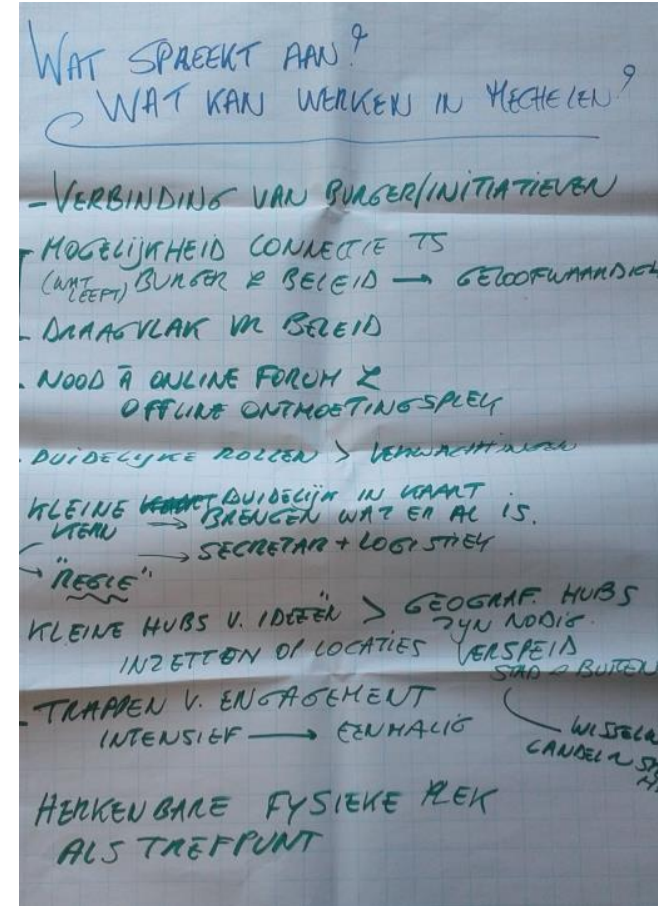 WAT SPREEKT AAN?
WAT KAN WERKEN IN MECHELEN?
- VERBINDING VAN BURGER/INITIATIEVEN
- MOGELIJKHEID CONNECTIE TS
(WAT LEEFT) BURGER & BELEID → GELOOFWAARDIG
- DRAAGVLAK VR BELEID
- NOOD À ONLINE FORUM &
OFFLINE ONTMOETINGSPLEK
- DUIDELIJKE ROLLEN > VERWACHTINGEN
KLEINE KERN → DUIDELIJK IN KAART
BRENGEN WAT ER AL IS.
→ SECRETAR + LOGISTIEK
→ "REGIE"
KLEINE HUBS V. IDEEËN > GEOGRAF. HUBS
ZYN NODIG.
INZETTEN OP LOCATIES VERSPEID
STAD BUITEN
- TRAPPEN V. ENGAGEMENT
INTENSIEF → EENMALIG
HERKENBARE FYSIEKE PLEK
ALS TREFPUNT